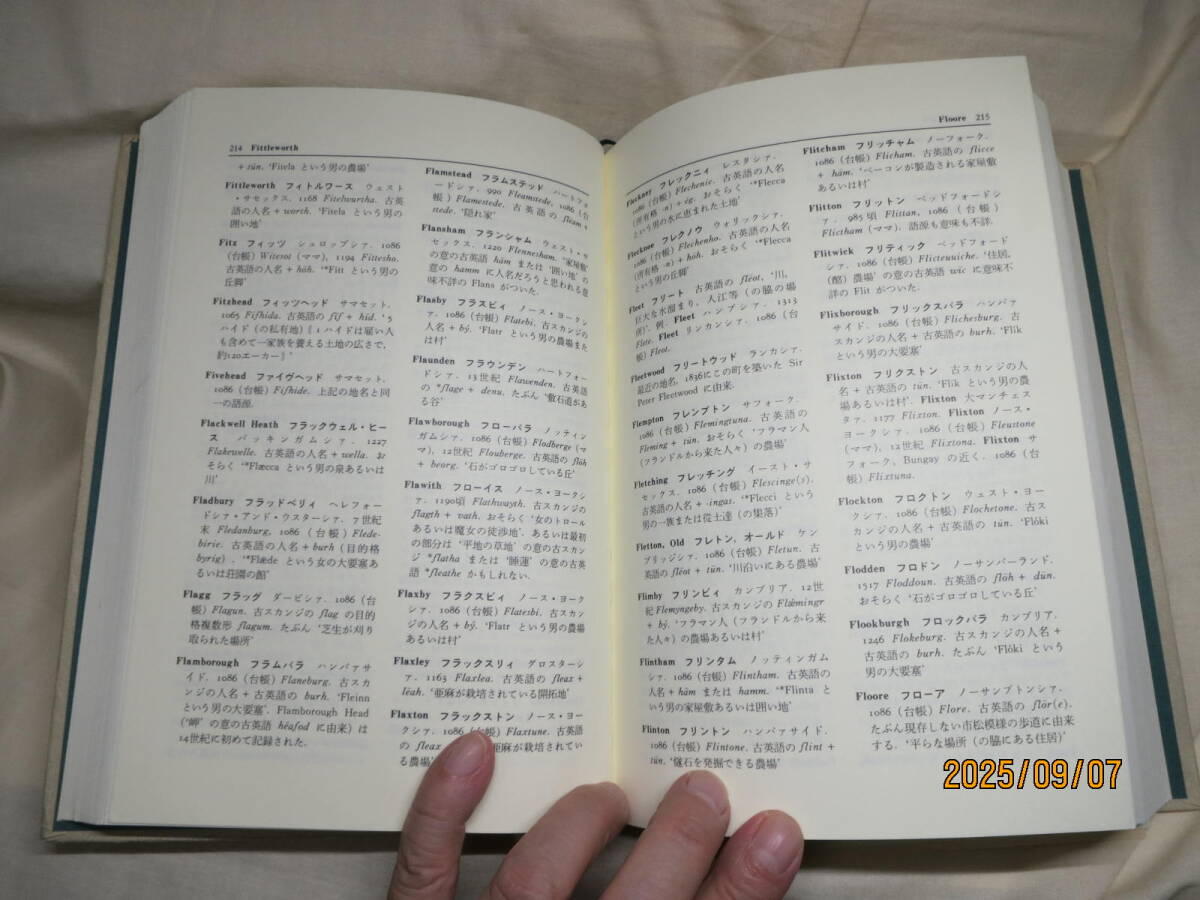 214 Fittleworth
+ tūn. ‘Fitela という男の農場’
Fittleworth フィトルワース ウェスト
・サセックス. 1168 Fitelwurtha. 古英
語の人名+worth. ‘Fitela という男の
囲い地’
Fitz フィッツ シュロップシァ. 1086
(台帳) Witesot (ママ), 1194 Fittesho.
古英語の人名+hōh. ‘*Fitt という男の
丘脚’
Fitzhead フィッツヘッド サマセット.
1065 Fifhida. 古英語の fīf + hīd. ‘5
ハイド (の私有地)〖1ハイドは雇い人
も含めて一家族を養える土地の広さで,
約120エーカー〗’
Fivehead ファイヴヘッド サマセット.
1086 (台帳) Fifhide. 上記の地名と同
一の語源.
Flackwell Heath フラックウェル・ヒー
ス バッキンガムシァ. 1227
Flakewelle. 古英語の人名+wella. お
そらく ‘*Flæcca という男の泉あるいは
川’
Fladbury フラッドベリィ ヘレフォー
ドシァ・アンド・ウスターシァ. 7世紀
末 Fledanburg, 1086 (台帳) Flede-
birie. 古英語の人名+burh (目的格
byrig). ‘*Flæde という女の大要塞あ
るいは荘園の館’
Flagg フラッグ ダービシァ. 1086 (台
帳) Flagun. 古スカンジの flag の目的
格複数形 flagum. たぶん ‘芝生が刈り
取られた場所’
Flamborough フラムバラ ハンバァサ
イド. 1086 (台帳) Flaneburg. 古スカ
ンジの人名+古英語の burh. ‘Fleinn
という男の大要塞’. Flamborough Head
(‘岬’ の意の古英語 hēafod に由来) は
14世紀に初めて記録された.
Flamstead フラムステッド ハートフォ
ードシァ. 990 Fleamstede, 1086 (台
帳) Flamestede. 古英語の flēam +
stede. ‘隠れ家’
Flansham フランシャム ウェスト・サ
セックス. 1220 Flennesham. ‘家屋敷’
の意の古英語 hām または ‘囲い地’ の
意の hamm に人名だろうと思われる意
味不詳の Flans がついた.
Flasby フラスビィ ノース・ヨークシ
ァ. 1086 (台帳) Flatebi. 古スカンジの
人名+bý. ‘Flatr という男の農場また
は村’
Flaunden フラウンデン ハートフォー
ドシァ. 13世紀 Flawenden. 古英語
の *flage + denu. たぶん ‘敷石道があ
る谷’
Flawborough フローバラ ノッティン
ガムシァ. 1086 (台帳) Flodberge (マ
マ), 12世紀 Flouberge. 古英語の flōh
+ beorg. ‘石がゴロゴロしている丘’
Flawith フローイス ノース・ヨークシ
ァ. 1190頃 Flathwayth. 古スカンジの
flagth + vath. おそらく ‘女のトロール
あるいは魔女の徒渉地’. あるいは最初
の部分は ‘平地の草地’ の意の古スカン
ジ *flatha または ‘睡蓮’ の意の古英
語 *fleathe かもしれない.
Flaxby フラクスビィ ノース・ヨーク
シァ. 1086 (台帳) Flatesbi. 古スカン
ジの人名+bý. ‘Flatr という男の農場
あるいは村’
Flaxley フラックスリィ グロスターシ
ァ. 1163 Flaxlea. 古英語の fleax +
lēah. ‘亜麻が栽培されている開拓地’
Flaxton フラックストン ノース・ヨー
クシァ. 1086 (台帳) Flaxtune. 古英語
の fleax 亜麻が栽培されてい
る農場’
Floore 215
Fleckney フレックニィ レスタシァ.
1086 (台帳) Flechenie. 古英語の人名
(所有格 -n)+ēg. おそらく ‘*Flecca
という男の水に恵まれた土地’
Flecknee フレクノウ ウォリックシァ.
1086 (台帳) Flechenho. 古英語の人名
(所有格 -n)+hōh. おそらく ‘*Flecca
という男の丘脚’
Fleet フリート 古英語の flēot. ‘川,
巨大な水溜まり, 入江等 (の脇の場
所)’. 例. Fleet ハンプシァ. 1313
Flete. Fleet リンカンシァ. 1086 (台
帳) Fleot.
Fleetwood フリートウッド ランカシァ.
最近の地名. 1836にこの町を築いた Sir
Peter Fleetwood に由来.
Flempton フレンプトン サフォーク.
1086 (台帳) Flemingtuna. 古英語の
Fleming + tūn. おそらく ‘フラマン人
(フランドルから来た人々) の農場’
Fletching フレッチング イースト・サ
セックス. 1086 (台帳) Flescinge(s).
古英語の人名+-ingas. ‘*Flecci という
男の一族または従士達 (の集落)’
Fletton, Old フレトン, オールド ケン
ブリッジシァ. 1086 (台帳) Fletun. 古
英語の flēot + tūn. ‘川沿いにある農場’
Flimby フリンビィ カンブリア. 12世
紀 Flemyngeby. 古スカンジの Flǽmingr
+ bý. ‘フラマン人 (フランドルから来
た人々) の農場あるいは村’
Flintham フリンタム ノッティンガム
シァ. 1086 (台帳) Flintham. 古英語の
人名+hām または hamm. ‘*Flinta と
いう男の家屋敷あるいは囲い地’
Flinton フリントン ハンバァサイド.
1086 (台帳) Flintone. 古英語の flint +
tūn. ‘燧石を発掘できる農場’
Flitcham フリッチャム ノーフォーク.
1086 (台帳) Flicham. 古英語の flicce
+ hām. ‘ベーコンが製造される家屋敷
あるいは村’
Flitton フリットン ベッドフォードシ
ァ. 985頃 Flittan, 1086 (台帳)
Flictham (ママ). 語源も意味も不詳.
Flitwick フリティック ベッドフォード
シァ. 1086 (台帳) Flicteuuiche. ‘住居,
(酪) 農場’ の意の古英語 wīc に意味不
詳の Flit がついた.
Flixborough フリックスバラ ハンバァ
サイド. 1086 (台帳) Flichesburg. 古ス
カンジの人名+古英語の burh. ‘Flík
という男の大要塞’
Flixton フリクストン 古スカンジの人
名+古英語の tūn. ‘Flík という男の農
場あるいは村’. Flixton 大マンチェス
タァ. 1177 Flixton. Flixton ノース・
ヨークシァ. 1086 (台帳) Fleustone
(ママ), 12世紀 Flixtona. Flixton サ
フォーク, Bungay の近く. 1086 (台
帳) Flixtuna.
Flockton フロクトン ウェスト・ヨー
クシァ. 1086 (台帳) Flochetone. 古ス
カンジの人名+古英語の tūn. ‘Flóki
という男の農場’
Flodden フロドン ノーサンバーランド.
1517 Floddoun. 古英語の flōh + dūn.
おそらく ‘石がゴロゴロしている丘’
Flookburgh フロックバラ カンブリア.
1246 Flokeburg. 古スカンジの人名+
古英語の burh. たぶん ‘Flóki という
男の大要塞’
Floore フローア ノーサンプトンシァ.
1086 (台帳) Flore. 古英語の flōr(e).
たぶん現存しない市松模様の歩道に由来
する. ‘平らな場所 (の脇にある住居)’
2025/09/07